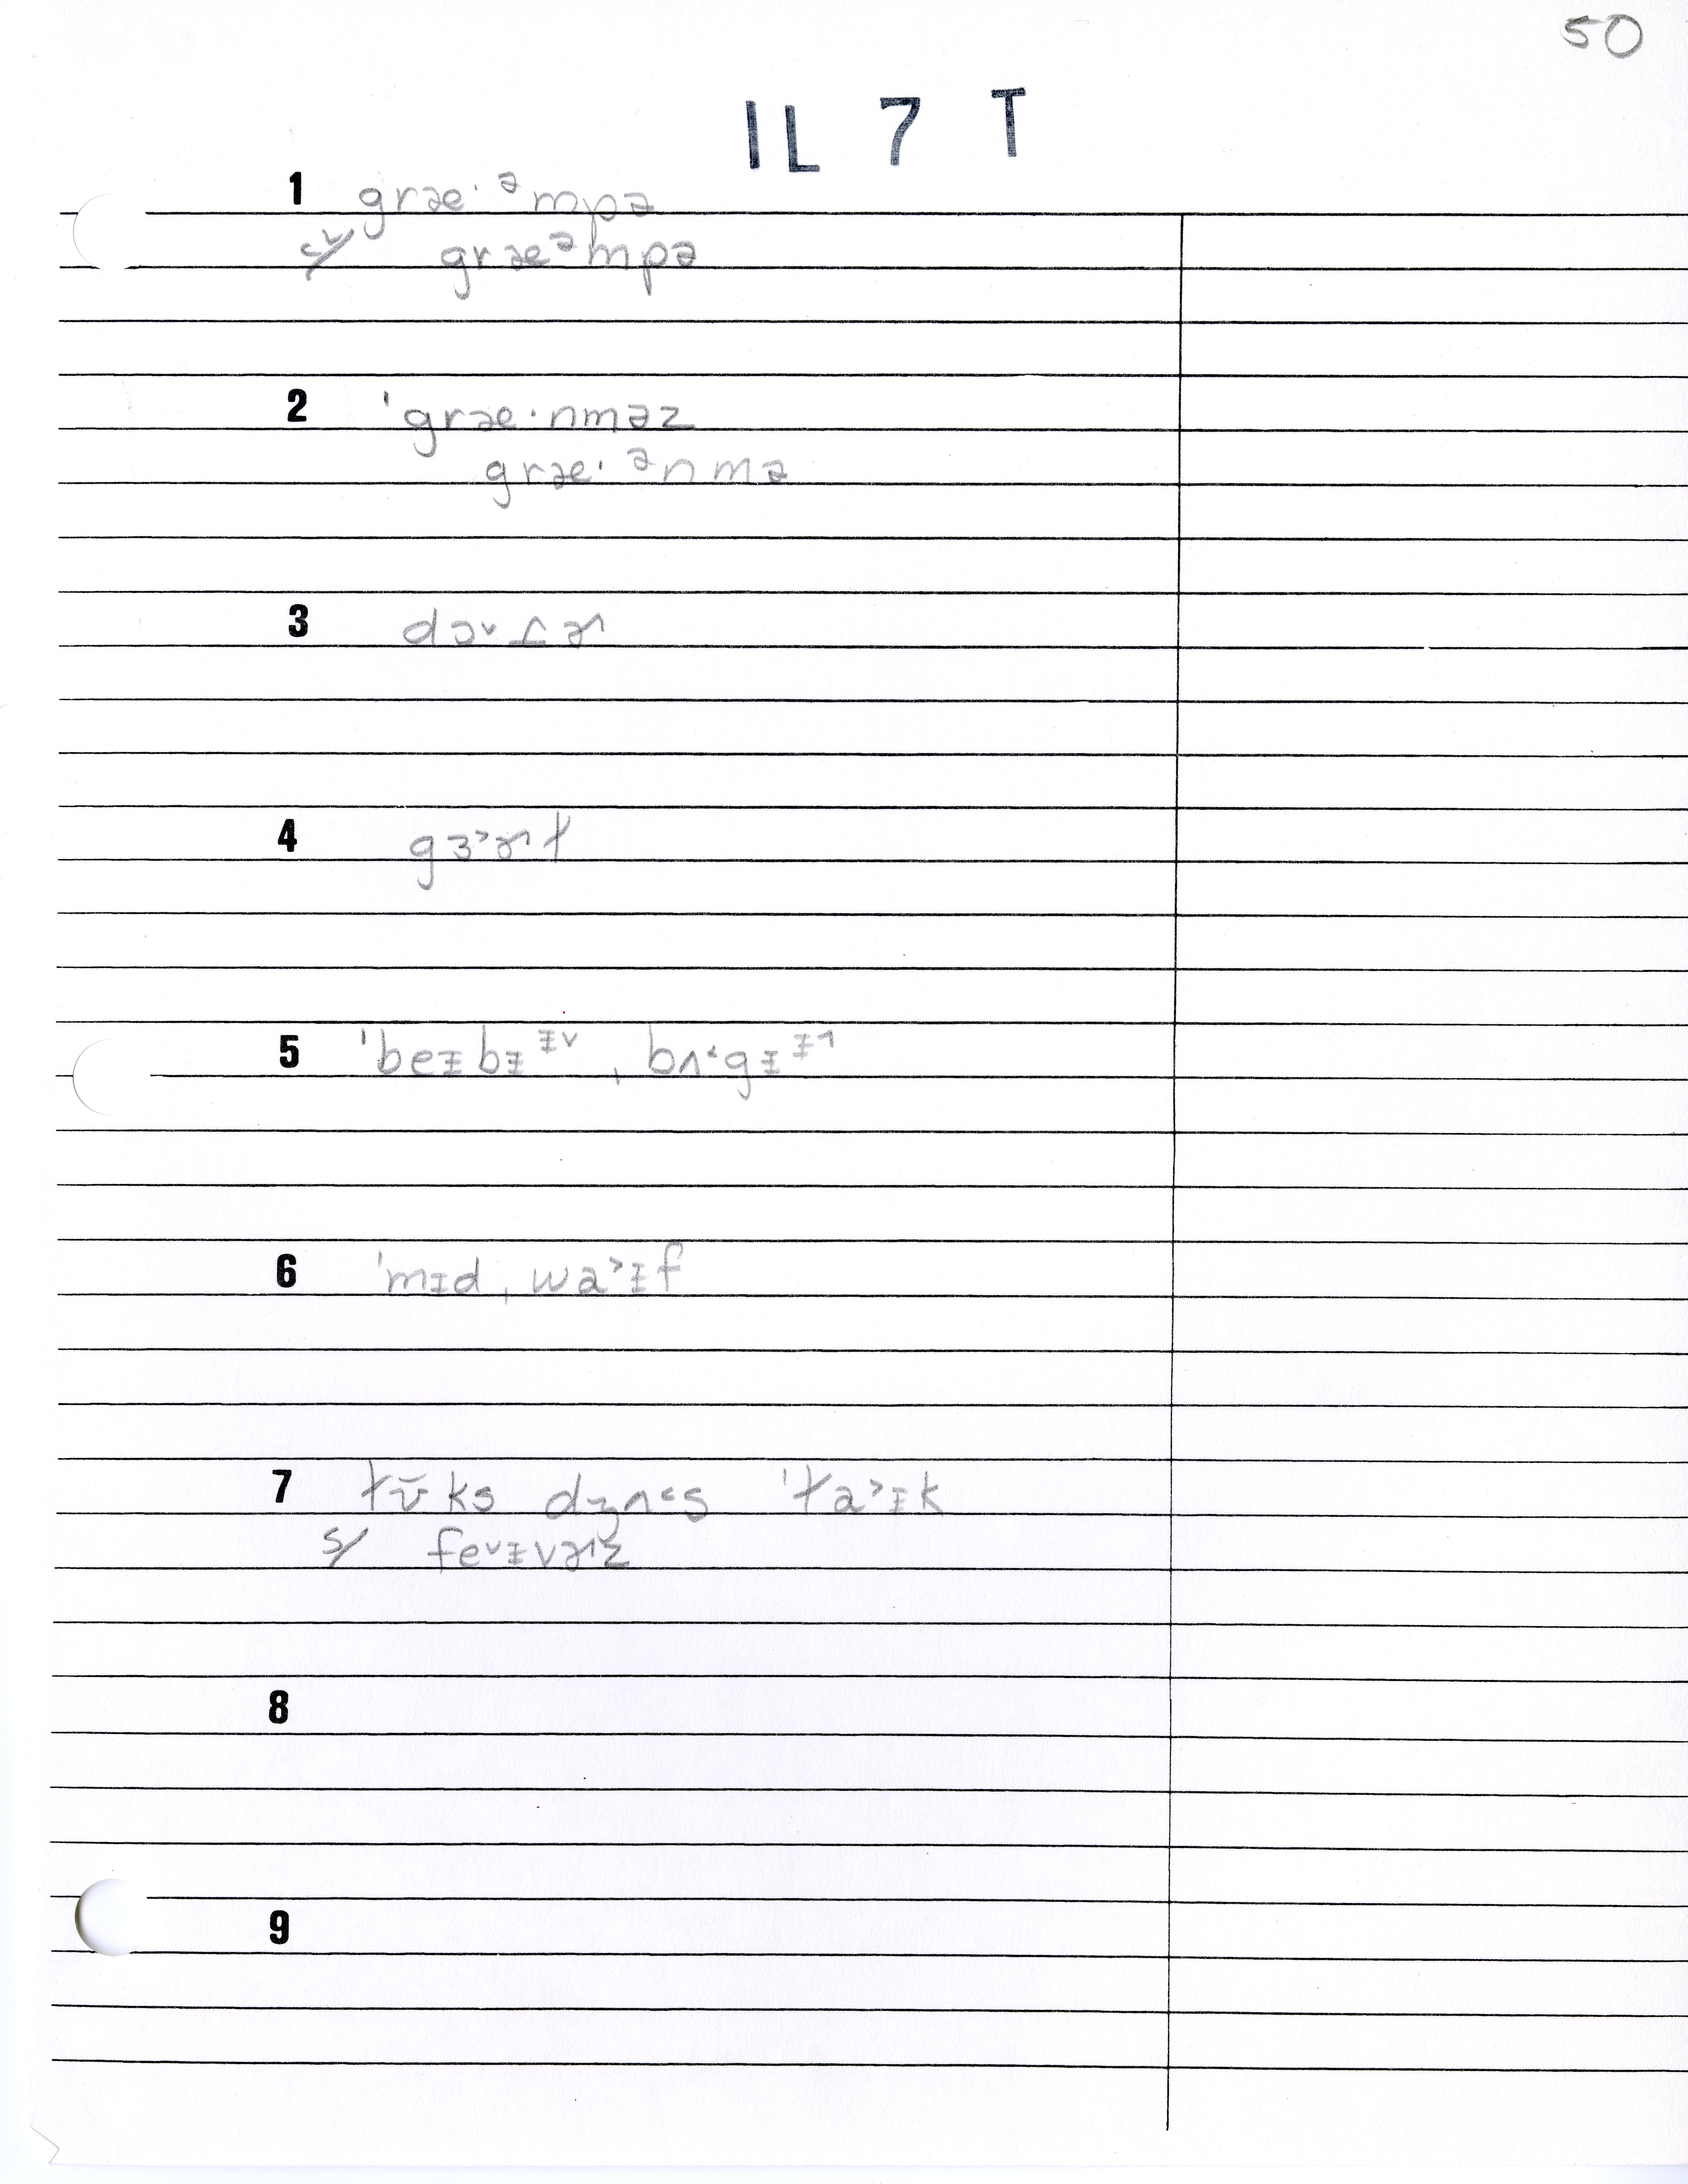 50
IL 7 T
1 græ·ᵊmpə
græᵊmpə
2 ˈgræ·nməz
græ·ᵊnmə
3 dɔ˅ɾɚ
4 gɜ˃ɚɫ
5 ˈbeɪbɪᶦ˅ , bʌ˂gɪᶦ˄
6 ˈmɪd, wa˃ɪf
7 ɫʊ̆ks dʒʌ˂s ˈɫa˃ɪk
s/ fe˅ɪvɚz̥
8
9